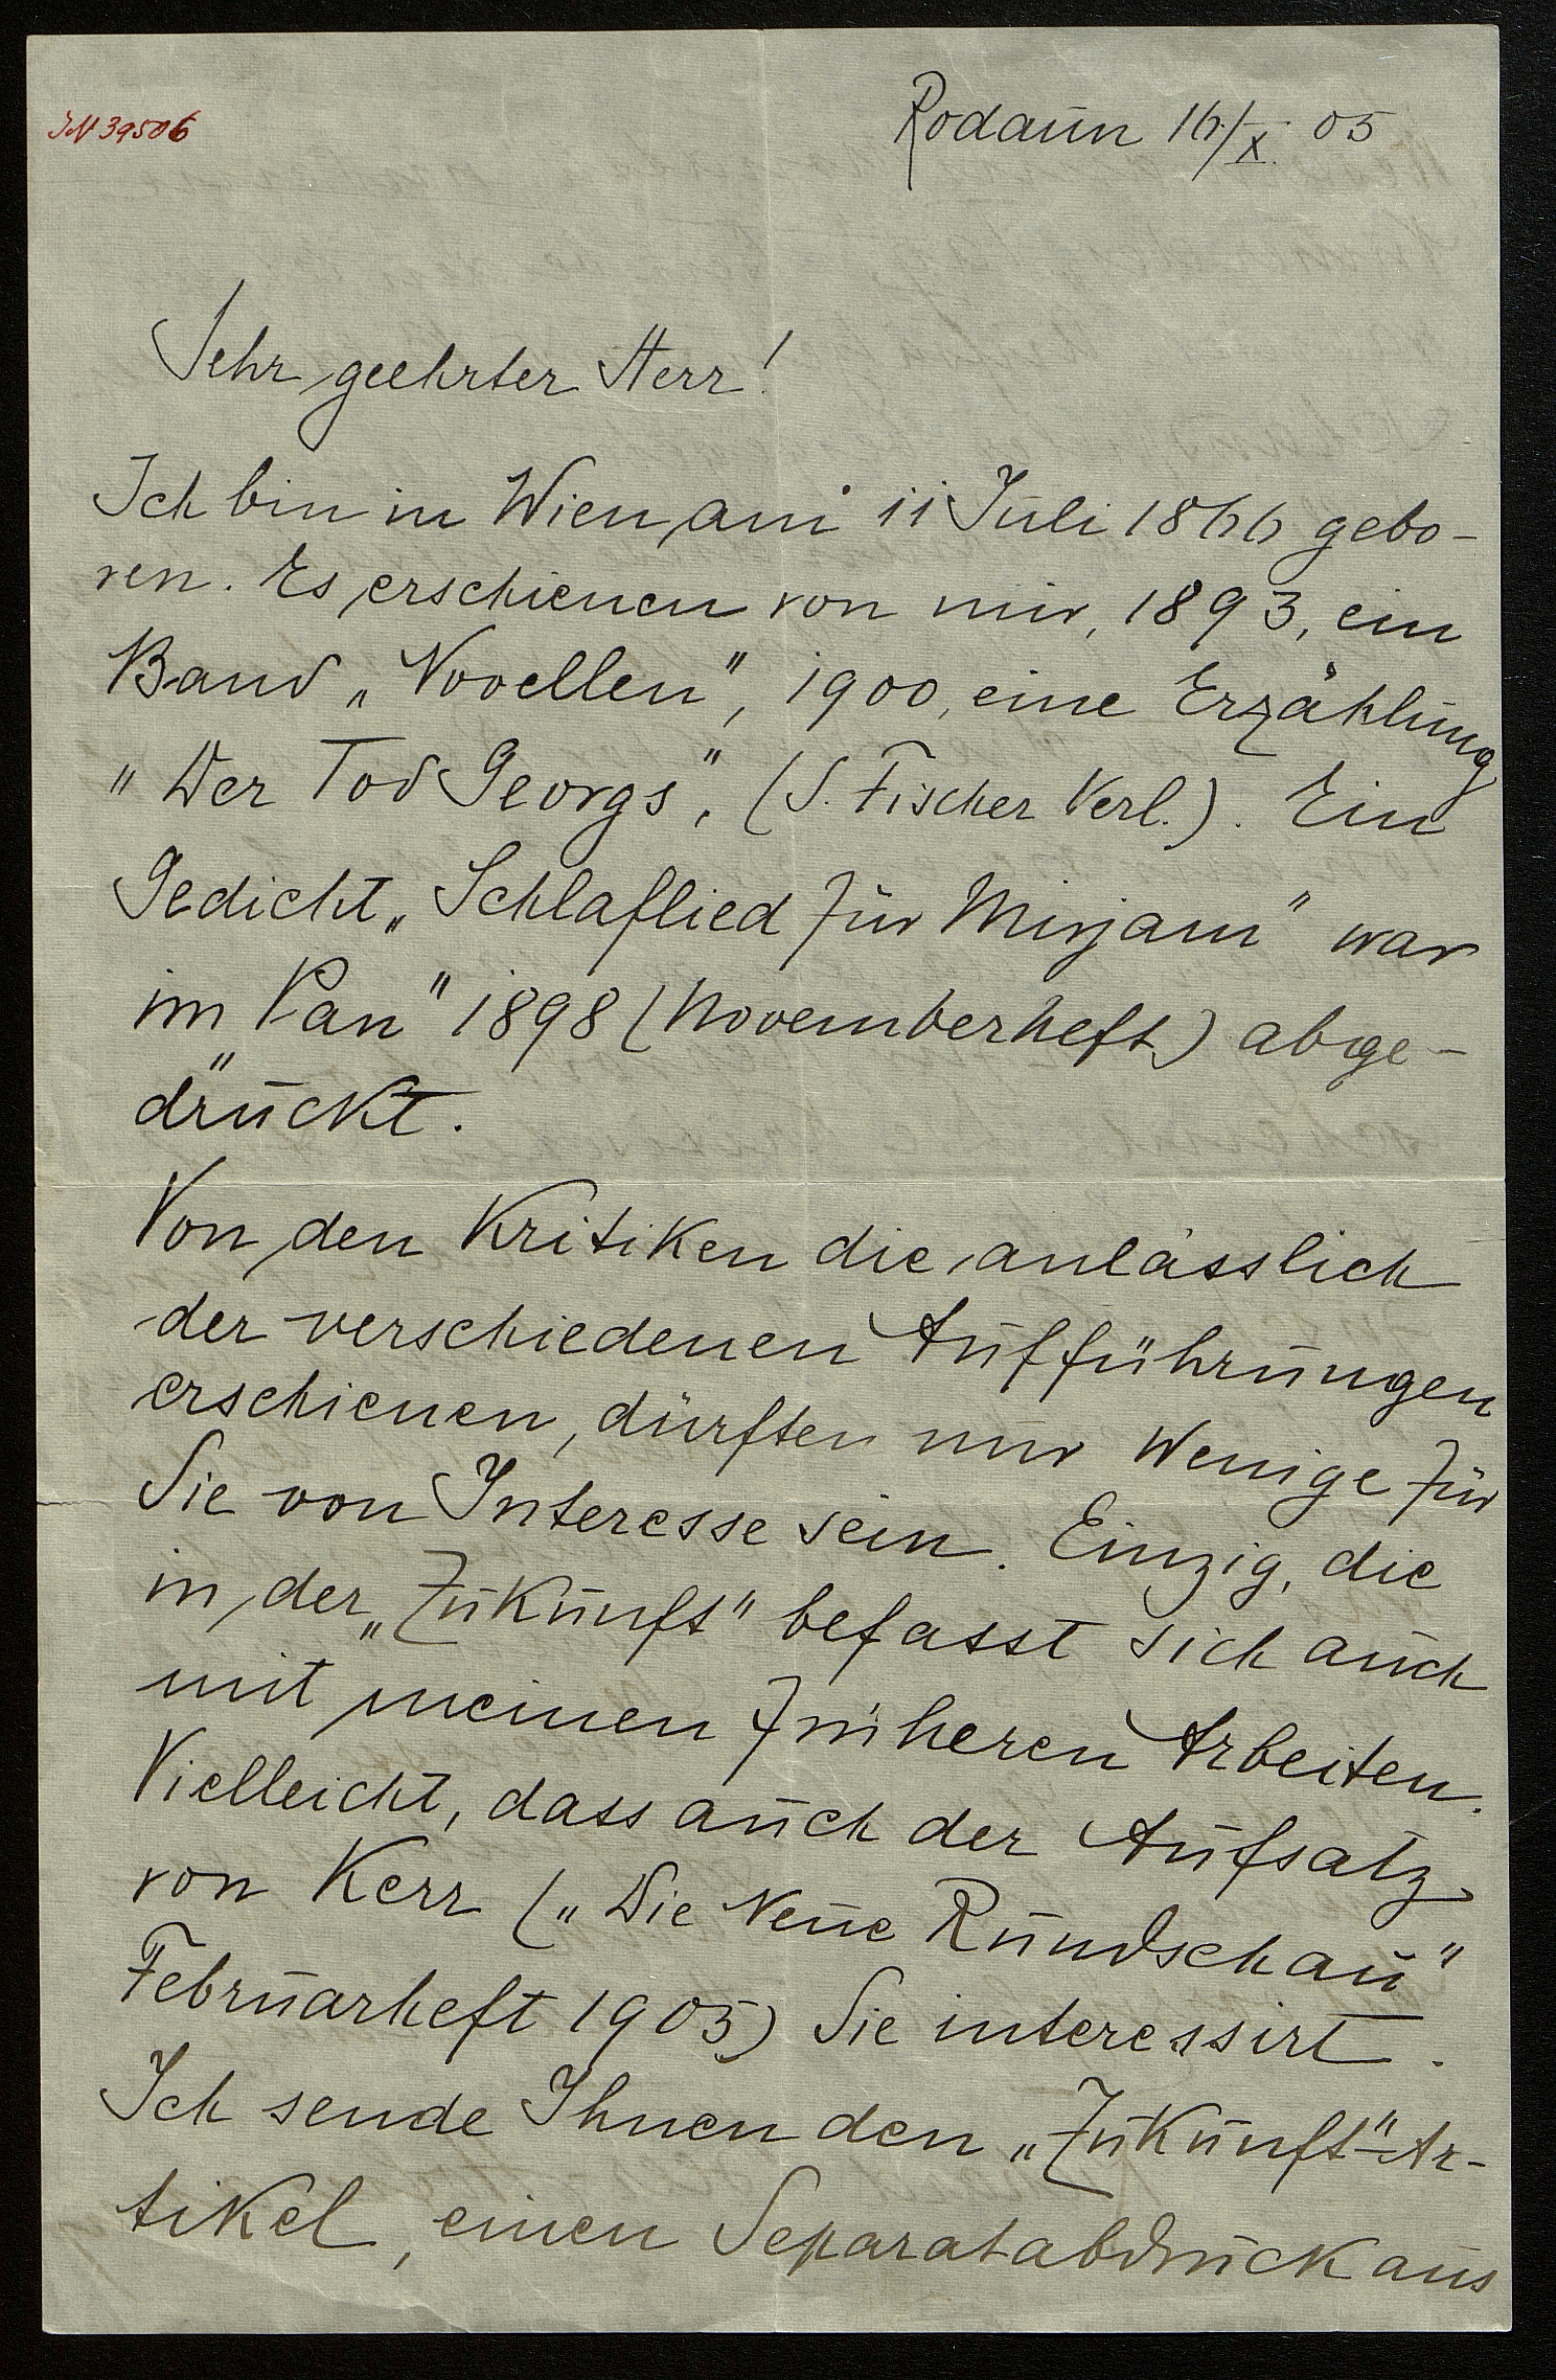 IN 39506
Rodaun 16/X. 05
Sehr geehrter Herr!
Ich bin in Wien am 11 Juli 1866 gebo-
ren. Es erschienen von mir, 1893, ein
Band „Novellen", 1900, eine Erzählung
„Der Tod Georgs", (S. Fischer Verl.). Ein
Gedicht „Schlaflied für Mirjam" war
im „Pan" 1898 (Novemberheft) abge-
druckt.
Von den Kritiken die anlässlich
der verschiedenen Aufführungen
erschienen, dürften nur Wenige für
Sie von Interesse sein. Einzig, die
in der „Zukunft" befasst sich auch
mit meinen früheren Arbeiten.
Vielleicht, dass auch der Aufsatz
von Kerr („Die Neue Rundschau"
Februarheft 1905) Sie interessirt.
Ich sende Ihnen den „Zukunft"-Ar-
tikel, einen Separatabdruck aus